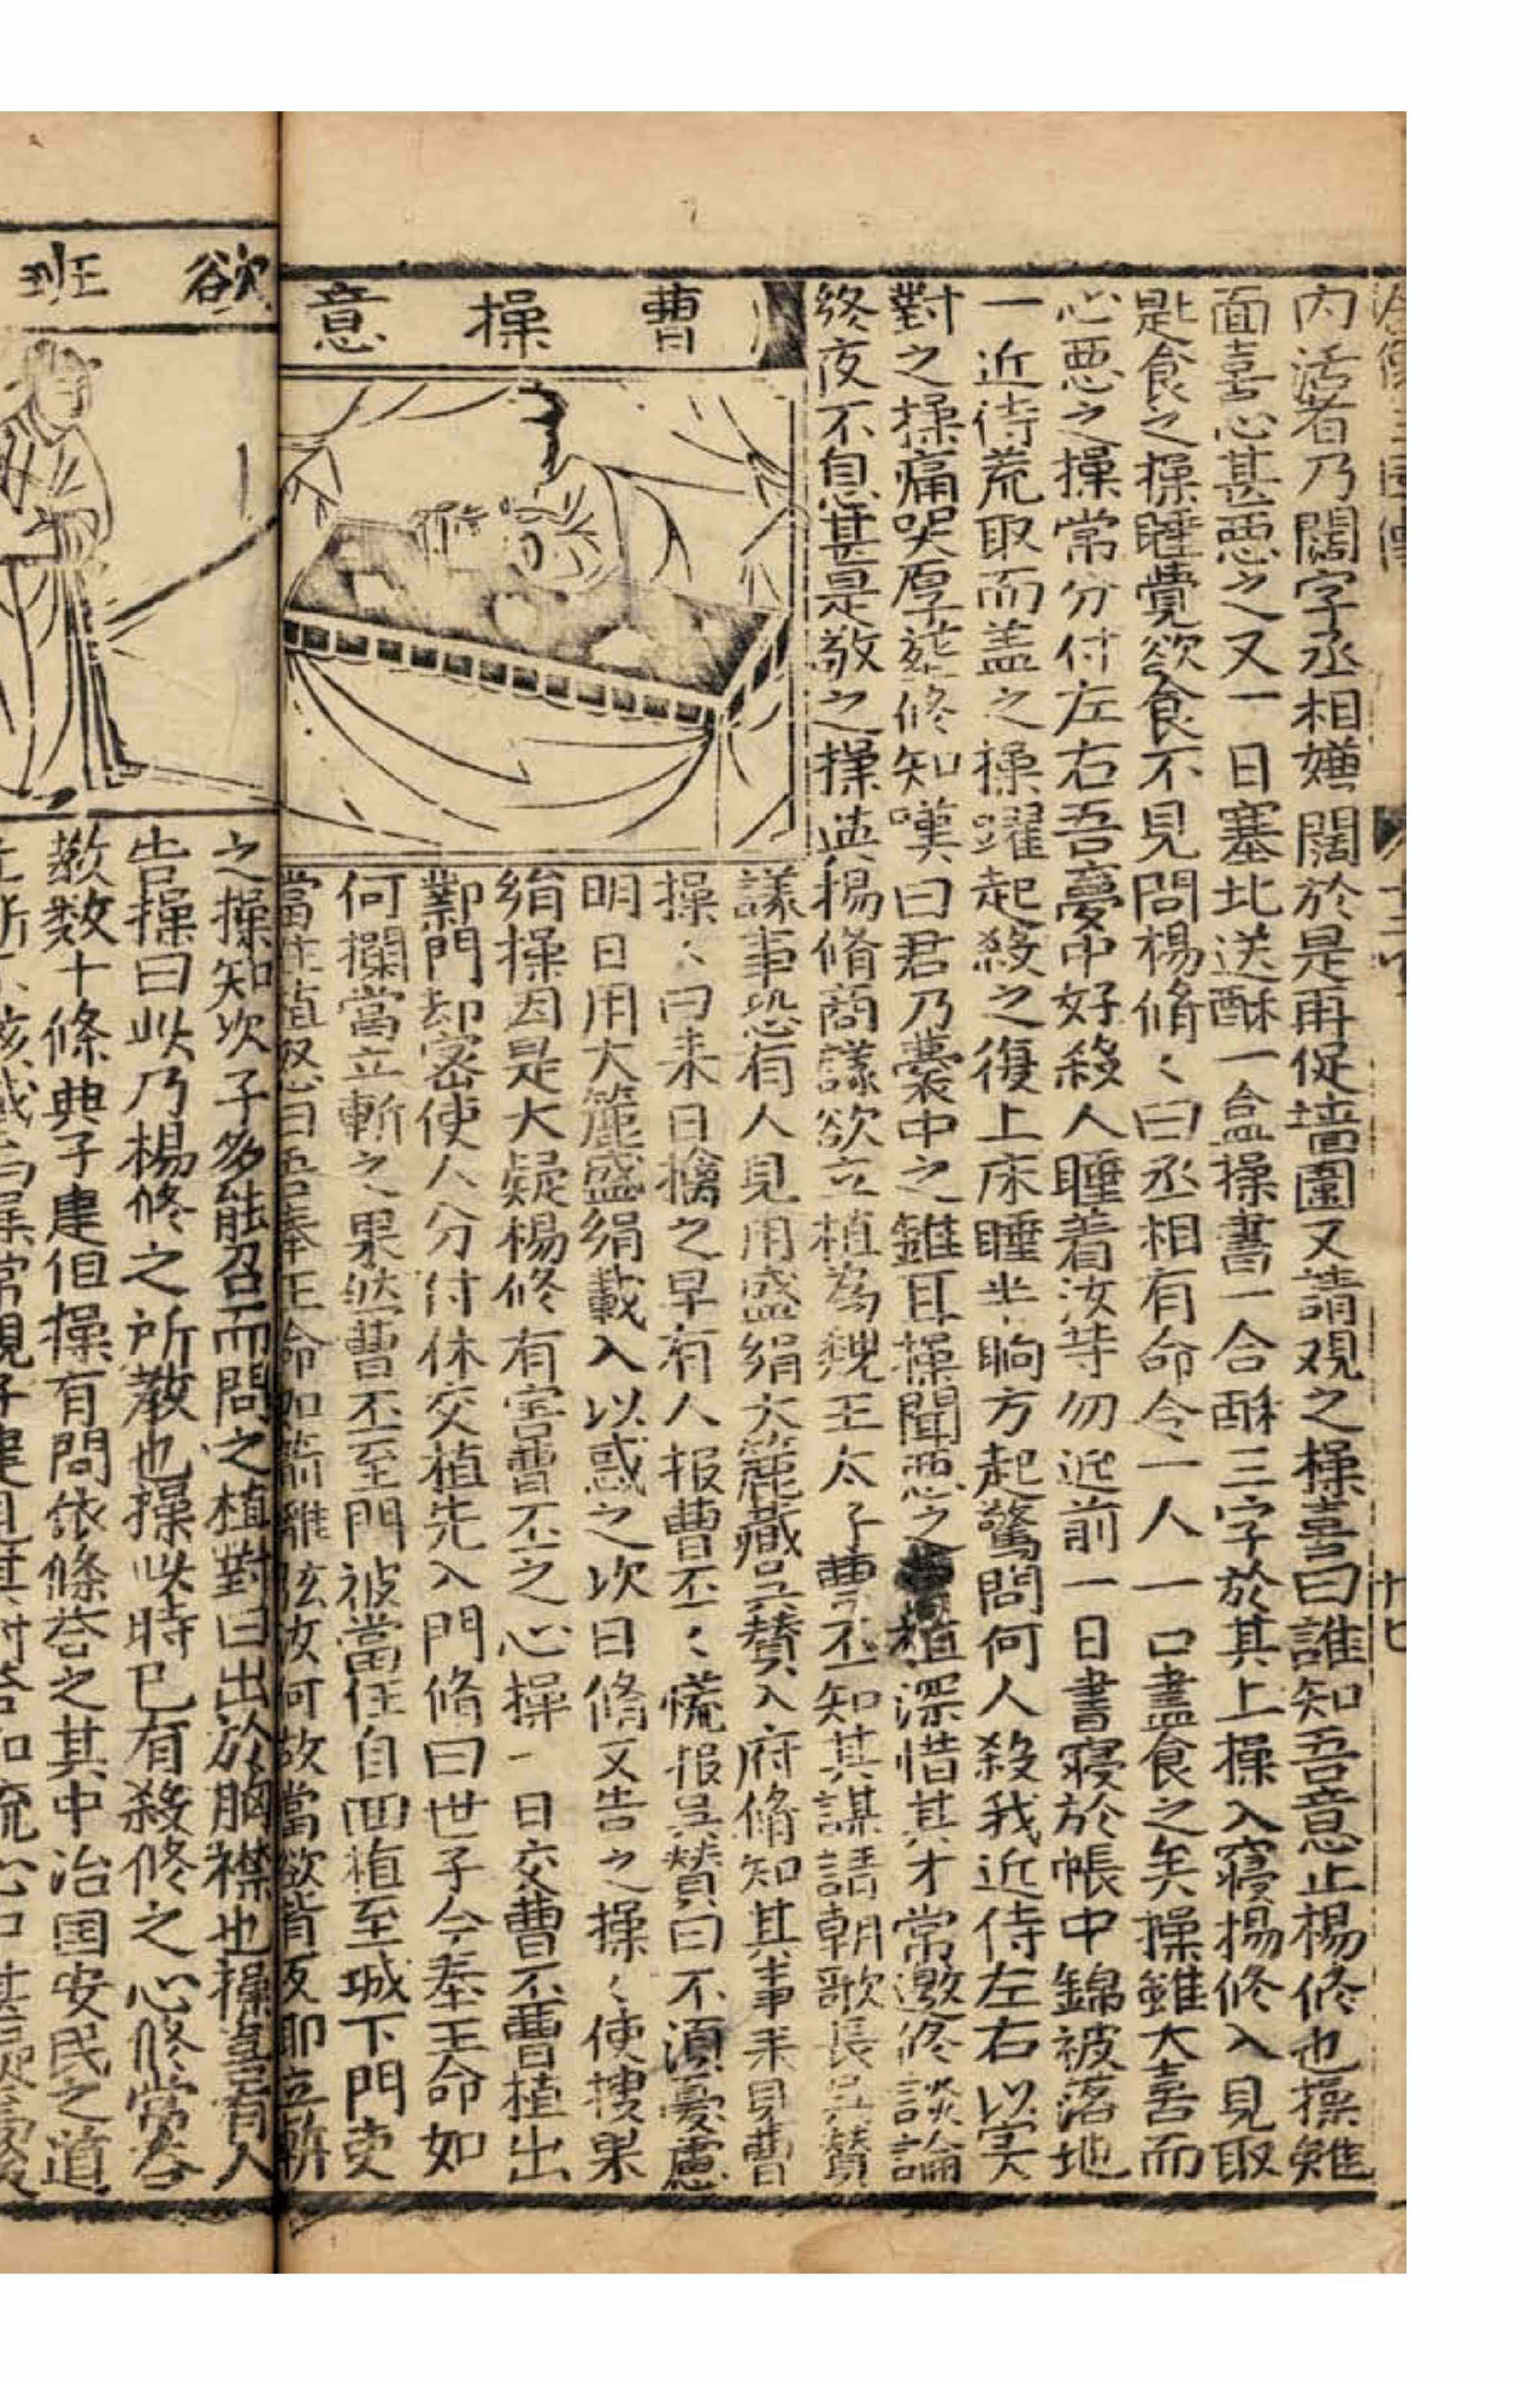 内活者乃闊字丞相嫌闊於是再促墻圍又請观之操喜曰誰知吾意止楊修也操雖
面喜心甚惡之又一日塞北送酥一盒操書一合酥三字於其上操入寝楊修入見取
匙食之操睡覺欲食不見問楊脩〻曰丞相有命令一人一口盡食之矣操雖大喜而
心惡之操常分付左右吾夢中好殺人睡着汝寺勿近前一日書寝於帳中錦被落地
一近侍荒取而盖之操躍起殺之復上床睡半晌方起驚問何人殺我近侍左右以实
對之操痛哭厚葬修知嘆曰君乃囊中之錐耳操聞惡之植深惜其才常邀修談論
終夜不息甚是敬之操與楊脩商議欲立植為魏王太子曹丕知其謀請朝歌長吴賛
曹操意
議事恐有人見用盛絹大簏藏吴賛入府脩知其事来見曹
操〻曰来日擒之早有人报曹丕〻慌报吴賛曰不須憂慮
明日用大簏盛絹載入以惑之次日脩又告之操〻使搜果
絹操因是大疑楊修有害曹丕之心操一日交曹丕曹植出
鄴門却密使人分付休交植先入門脩曰世子今奉王命如
何攔當立斬之果然曹丕至門被當住自回植至城下門吏
當住植怒曰吾奉王命如箭離弦汝何故當欲背反耶立斬
欲班
之操知次子多能召而問之植對曰出於胸襟也操喜有人
告操曰此乃楊修之所教也操此時已有殺修之心修常答
教数十條典子建但操有問依條荅之其中治国安民之道